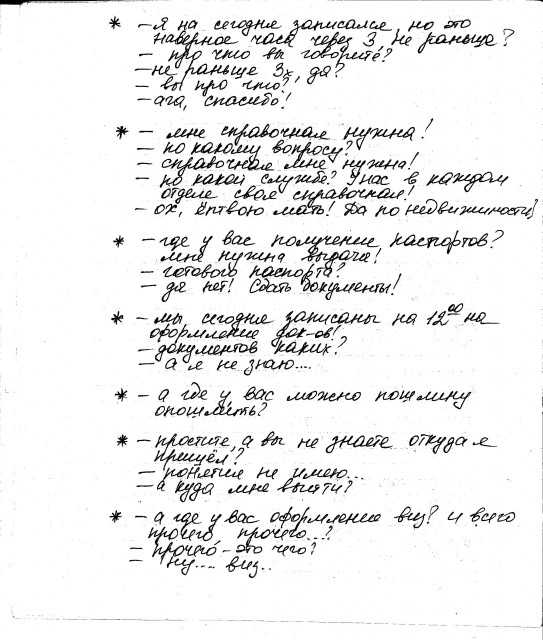 * – Я на сегодня записался, но это
наверное часа через 3, не раньше?
– про что вы говорите?
– не раньше 3х, да?
– вы про что?
– ага, спасибо!
* – мне справочная нужна!
– по какому вопросу?
– справочная мне нужна!
– по какой службе? У нас в каждом
отделе своя справочная!
– ох, ёптвою мать! Да по недвижимости!
* – где у вас получение паспортов?
мне нужна выдача!
– готового паспорта?
– да нет! Сдать документы!
* – мы сегодня записаны на 12⁰⁰ на
оформление док-ов!
– документов каких?
– а я не знаю....
* – а где у вас можно пошлину
опошлить?
* – простите, а вы не знаете откуда я
пришёл?
– понятия не имею...
– а куда мне выйти?
* – а где у вас оформление виз? и всего
прочего, прочего...?
– прочего – это чего?
– ну.... виз..